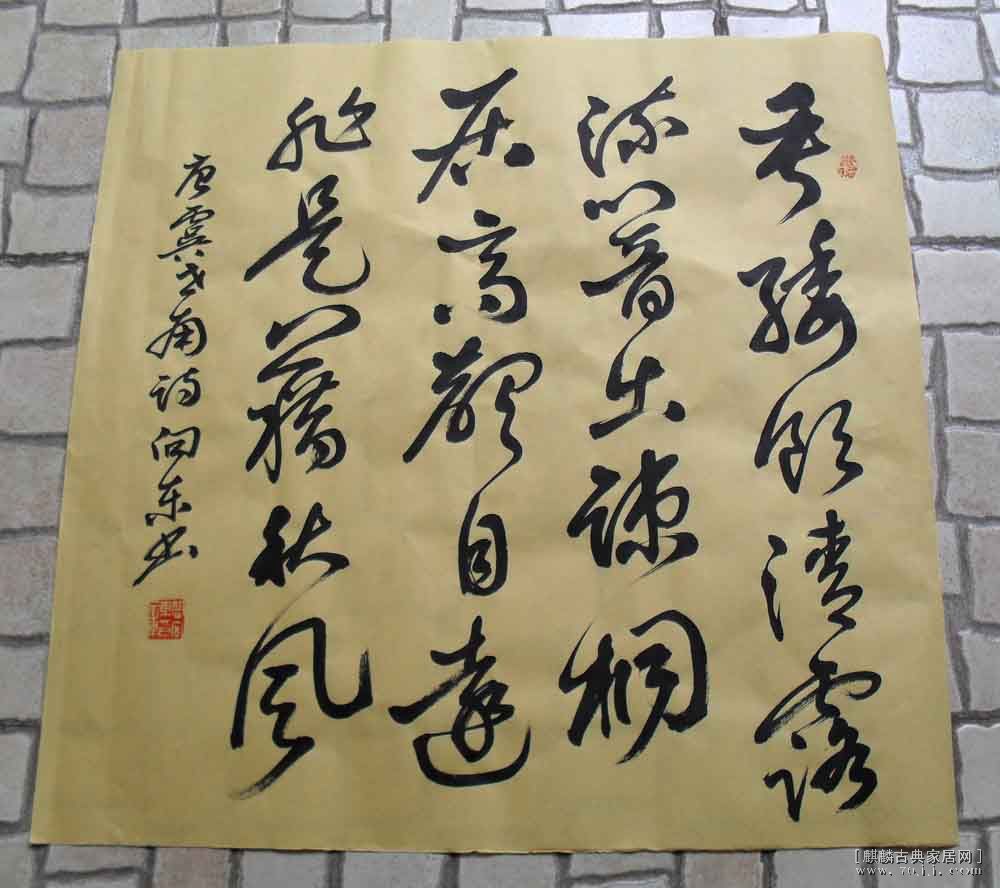 垂緌飲清露
流響出疎桐
居高聲自遠
非是藉秋風
唐虞世南詩向東書
[麒麟古典家居网]